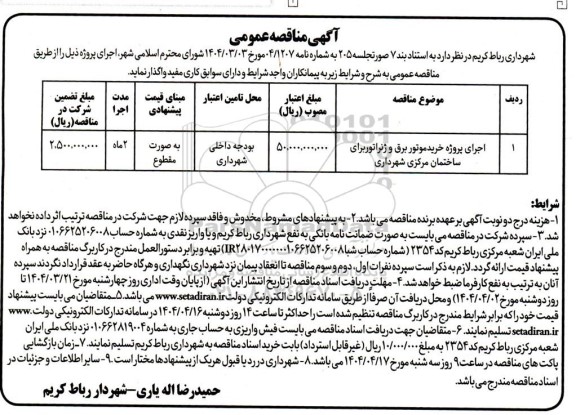 آگهی مناقصه عمومی
شهرداری رباط کریم در نظر دارد به استناد بند ۷ صورتجلسه ۲۰۵ به شماره نامه ۰۴/۱۲۰۷ مورخ ۱۴۰۴/۰۳/۰۳ شورای محترم اسلامی شهر، اجرای پروژه ذیل را از طریق
مناقصه عمومی به شرح و شرایط زیر به پیمانکاران واجد شرایط و دارای سوابق کاری مفید واگذار نماید.
ردیف موضوع مناقصه مبلغ اعتبار مصوب (ریال) محل تامین اعتبار مبنای قیمت پیشنهادی مدت اجرا مبلغ تضمین شرکت در مناقصه (ریال)
۱ اجرای پروژه خرید موتور برق و ژنراتور برای ساختمان مرکزی شهرداری ۵۰.۰۰۰.۰۰۰.۰۰۰ بودجه داخلی شهرداری به صورت مقطوع ۲ماه ۲.۵۰۰.۰۰۰.۰۰۰
شرایط:
۱- هزینه درج دو نوبت آگهی بر عهده برنده مناقصه می باشد. ۲- به پیشنهادهای مشروط، مخدوش و فاقد سپرده لازم جهت شرکت در مناقصه ترتیب اثر داده نخواهد
شد. ۳- سپرده شرکت در مناقصه می بایست به صورت ضمانت نامه بانکی به نفع شهرداری رباط کریم و یا واریز نقدی به شماره حساب ۰۱۰۶۶۲۵۲۰۶۰۰۸ نزد بانک
ملی ایران شعبه مرکزی رباط کریم کد ۲۳۵۴ (شماره حساب شبا IR۲۸۰۱۷۰۰۰۰۰۰۰۱۰۶۶۲۵۲۰۶۰۰۸) تهیه و برابر دستورالعمل مندرج در کاربرگ مناقصه به همراه
پیشنهاد قیمت ارائه گردد. لازم به ذکر است سپرده نفرات اول، دوم و سوم مناقصه تا انعقاد پیمان نزد شهرداری نگهداری و هرگاه حاضر به عقد قرارداد نگردند سپرده
آنان به ترتیب به نفع کارفرما ضبط خواهد شد. ۴- مهلت دریافت اسناد مناقصه از تاریخ انتشار این آگهی (از پایان وقت اداری روز چهارشنبه مورخ ۱۴۰۴/۰۳/۲۱ تا
روز دوشنبه مورخ ۱۴۰۴/۰۴/۰۲) و محل دریافت آن صرفا از طریق سامانه تدارکات الکترونیکی دولت www.setadiran.ir می باشد. ۵- متقاضیان می بایست پیشنهاد
قیمت خود را که برابر شرایط مندرج در کاربرگ مناقصه تنظیم شده است را حداکثر تا ساعت ۱۴ روز دوشنبه ۱۴۰۴/۰۴/۱۶ در سامانه تدارکات الکترونیکی دولت www.
setadiran.ir تسلیم نمایند. ۶- متقاضیان جهت دریافت اسناد مناقصه می بایست فیش واریزی به حساب جاری به شماره ۰۱۰۶۶۲۸۱۹۰۰۴ نزد بانک ملی ایران
شعبه مرکزی رباط کریم کد ۲۳۵۴ به مبلغ ۱۰/۰۰۰/۰۰۰ ریال (غیر قابل استرداد) بابت خرید اسناد مناقصه به شهرداری رباط کریم تسلیم نمایند. ۷- زمان بازگشایی
پاکت های مناقصه در ساعت ۹ روز سه شنبه مورخ ۱۴۰۴/۰۴/۱۷ می باشد. ۸- شهرداری در رد یا قبول هر یک از پیشنهادها مختار است. ۹- سایر اطلاعات و جزئیات در
اسناد مناقصه مندرج می باشد.
حمیدرضا اله یاری- شهردار رباط کریم